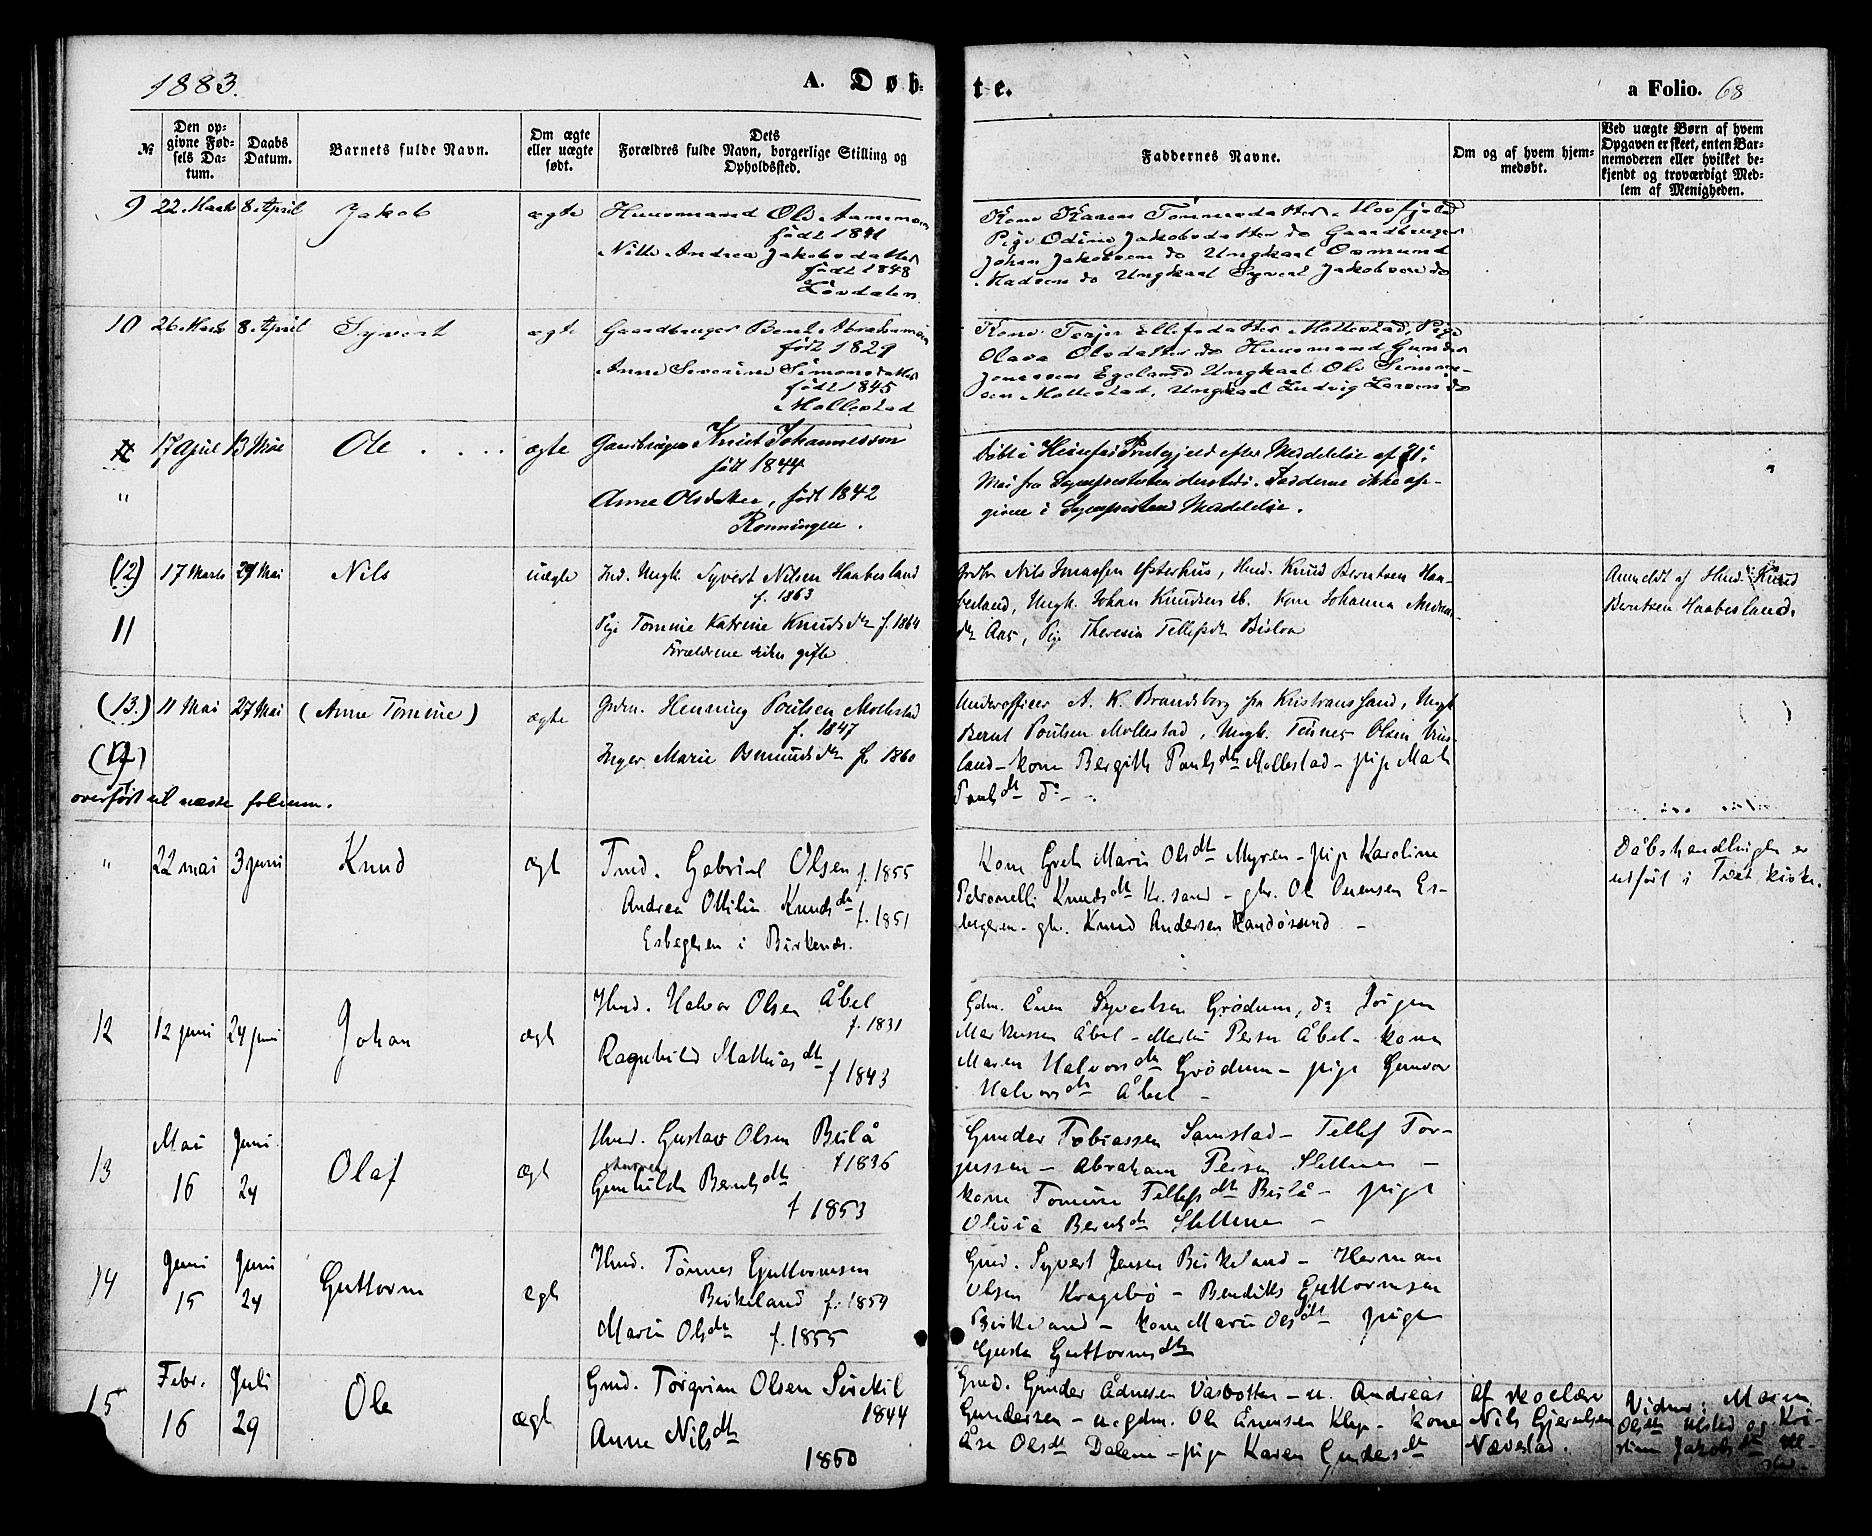 1883.
A. Døb-
te.
a Folio. 68
№
Den op-
givne Fød-
sels Da-
tum.
Daabs
Datum.
Barnets fulde Navn.
Om ægte
eller uægte
født.
Dets
Forældres fulde Navn, borgerlige Stilling og
Opholdssted.
Faddernes Navne.
Om og af hvem hjem-
medøbt.
Ved uægte Børn af hvem
Opgaven er skeet, enten Bar-
nemoderen eller hvilket be-
kjendt og troværdigt Med-
lem af Menigheden.
9 22 Marts 8. April Jakob ægte Huusmand Ole
født 1841
Andrea Jakobsdatter
født 1848
Kone Karen Tømmesdatter
Pige Odine Jakobsdatter do Gaardbruger
Johan Jakobsen do Ungkarl Osmund
Madsen do Ungkarl Syvert Jakobsen do
10 26 Marts 8. April Syvert ægte Gaardbruger Bernt Abrahamsen
født 1829
Anne Severine Simonsdatter
født 1845
Mollestad
Kone Terjer Ellefsdatter Mollestad, Pige
Olava Olsdatter do Huusmand Gunder
Jonassen Egeland Ungkarl Ole Simon-
sen Mollestad, Ungkarl Ludvig Larsen do
17 April 13 Mai Ole . . . . ægte Gaardbruger Knud Johannesson
født 1844
" Anne Olsdatter, født 1842
Rønningen.
Døbt i Præstegjeld efter Meddelelse af 21.
Mai fra Sognepræsten dersteds. Fadderne ikke op-
givne i Sognepræstens Meddelelse.
(12) 17 Marts 27 Mai Nils uægte Ind. Ungk. Syvert Nilsen Haabesland
f. 1863
11 Pige Tomine Katrine Knudsdtr f. 1864
Forældrene siden gifte
Nils Jonassen Østerhus, Hmd. Knud Berntsen Haa-
besland, Ungk. Johan Knudsen ib. Kone Johanna
dtr Aas, Pige Theresia Tellefsdtr
Anmeldt af Hmd. Knud
Berntsen Haabesland.
(13.) 11 Mai 27 Mai (Anne Tomine) ægte Grdm. Henning Poulsen Mollestad
f. 1847
Inger Marie Osmundsdtr f. 1860
overført til næste folium.
Underofficer A. K. Brandsborg fra Kristianssand, Ungk
Bernt Poulsen Mollestad, Ungk. Tønnes Olsen
land - kone Bergitte Poulsdtr Mollestad - pige
Poulsdtr do -
" 22 mai 3 juni Knud ægt Gabriel Olsen f. 1855
Andrea Ottilia Knudsdtr f. 1851
i Birkenes.
Kone Maria Olsdtr Myren - pige Karoline
Petronelli Knudsdtr Kr.sand - Ole
Knud Andersen Randøsund -
Dåbshandlingen er
utført i Tveit kirke.
12 12 juni 24 juni Johan ægt Hmd. Halvor Olsen Åbel
f. 1831
Ragnhild Mathiasdtr
f 1843
Gdm. Ånen Syvertsen Grødum, do Jørgen
Markussen Åbel - Martin Persen Åbel - kone
Maren Halvorsdtr Grødum - pige Gunvor
Halvorsdtr Åbel -
13 Mai
16 Juni
24 Olaf ægt Hmd. Gustav Olsen Bulå
f 1836
Gunhilda Berntsdtr
f 1853
Gunder Tobiassen Samstad - Tellef Tor-
jussen - Abraham Persen Slettene -
kone Tomine Tellefsdtr Bulå - pige
Olivia Berntsdtr Slettene -
14 Juni
15 Juni
24 Guttorm ægt Hmd. Tønnes Guttormsen
Birkeland f. 1859
Maria Olsdtr f. 1855
Gmd. Syvert Jensen Birkeland - Herman
Olsen Kragebø - Bendikt Guttormsen
Birkeland - kone Maria Olsdtr pige
Gusta Guttormsdtr
15 Febr.
16 Juli
29 Ole ægt Gmd. Torgrim Olsen
1844
Anne Nilsdtr
1850
Gmd. Gunder Ådnesen Vasbotten - u. Andreas
Gundersen - u. gdm. Ole Ånensen Klep - kone
Åse Olsdtr Dalene - pige Karen Gundersdtr
Af skolelær
Nils Gjeruldsen
Nævestad.
Vidner: Maren
Olsdtr Ulsted og Kri-
stine Jakobsdtr Ul-
sted -